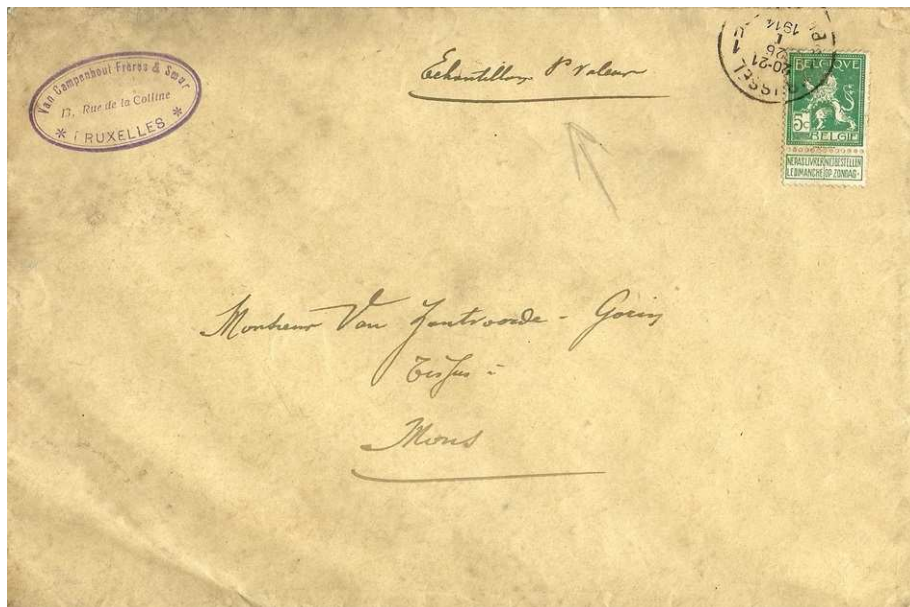 Van Campenhout Frères & Sœur
13, Rue de la Colline
* BRUXELLES *
Echantillon Sr Valeur
1
20-21
26
I
1914
BELGIQUE
5c
BELGIË
NE PAS LIVRER NIET BESTELLEN
LE DIMANCHE OP ZONDAG
Monsieur Van Zantvoorde - Gorin
Tissus -
Mons